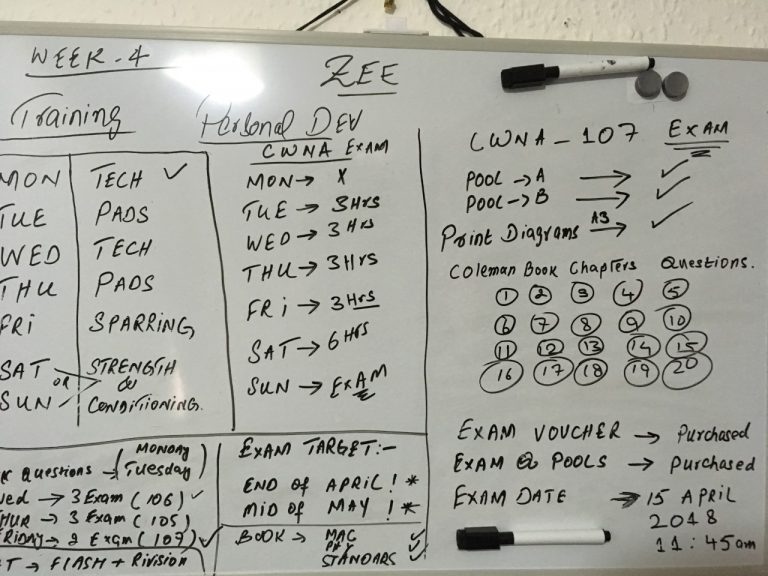 WEEK-4
ZEE
Training
Personal DEV
CWNA EXAM
MON TECH ✓
TUE PADS
WED TECH
THU PADS
FRI SPARRING
SAT OR SUN STRENGTH & CONDITIONING
MON → X
TUE → 3 Hrs
WED → 3 Hrs
THU → 3 Hrs
FRI → 3 Hrs
SAT → 6 Hrs
SUN → EXAM
CWNA-107 EXAM
POOL → A → ✓
POOL → B → ✓
Print Diagrams A3 → ✓
Coleman Book Chapters Questions.
1 2 3 4 5
6 7 8 9 10
11 12 13 14 15
16 17 18 19 20
Questions → (MONDAY
Tuesday)
Wed → 3 Exam (106) ✓
THUR → 3 Exam (105)
FRIDAY → 2 Exam (107) ✓
→ FLASH + Rivision
EXAM TARGET:-
END OF APRIL! *
MID OF MAY! *
BOOK → MAC ✓
PHY ✓
STANDARS ✓
EXAM VOUCHER → Purchased
EXAM POOLS → Purchased
EXAM DATE → 15 APRIL
2018
11:45am